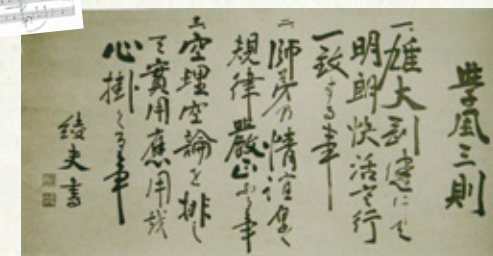 學風三則
一、雄大剛健にして
明朗快活言行
一致する事
二、師弟の情誼優く
規律嚴正なる事
三、空理空論を排し
て實用應用を
心掛くる事
綾夫書